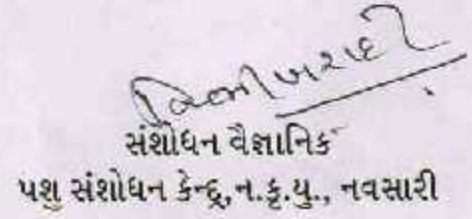 સંશોધન વૈજ્ઞાનિક
પશુ સંશોધન કેન્દ્ર,ન.કૃ.યુ., નવસારી